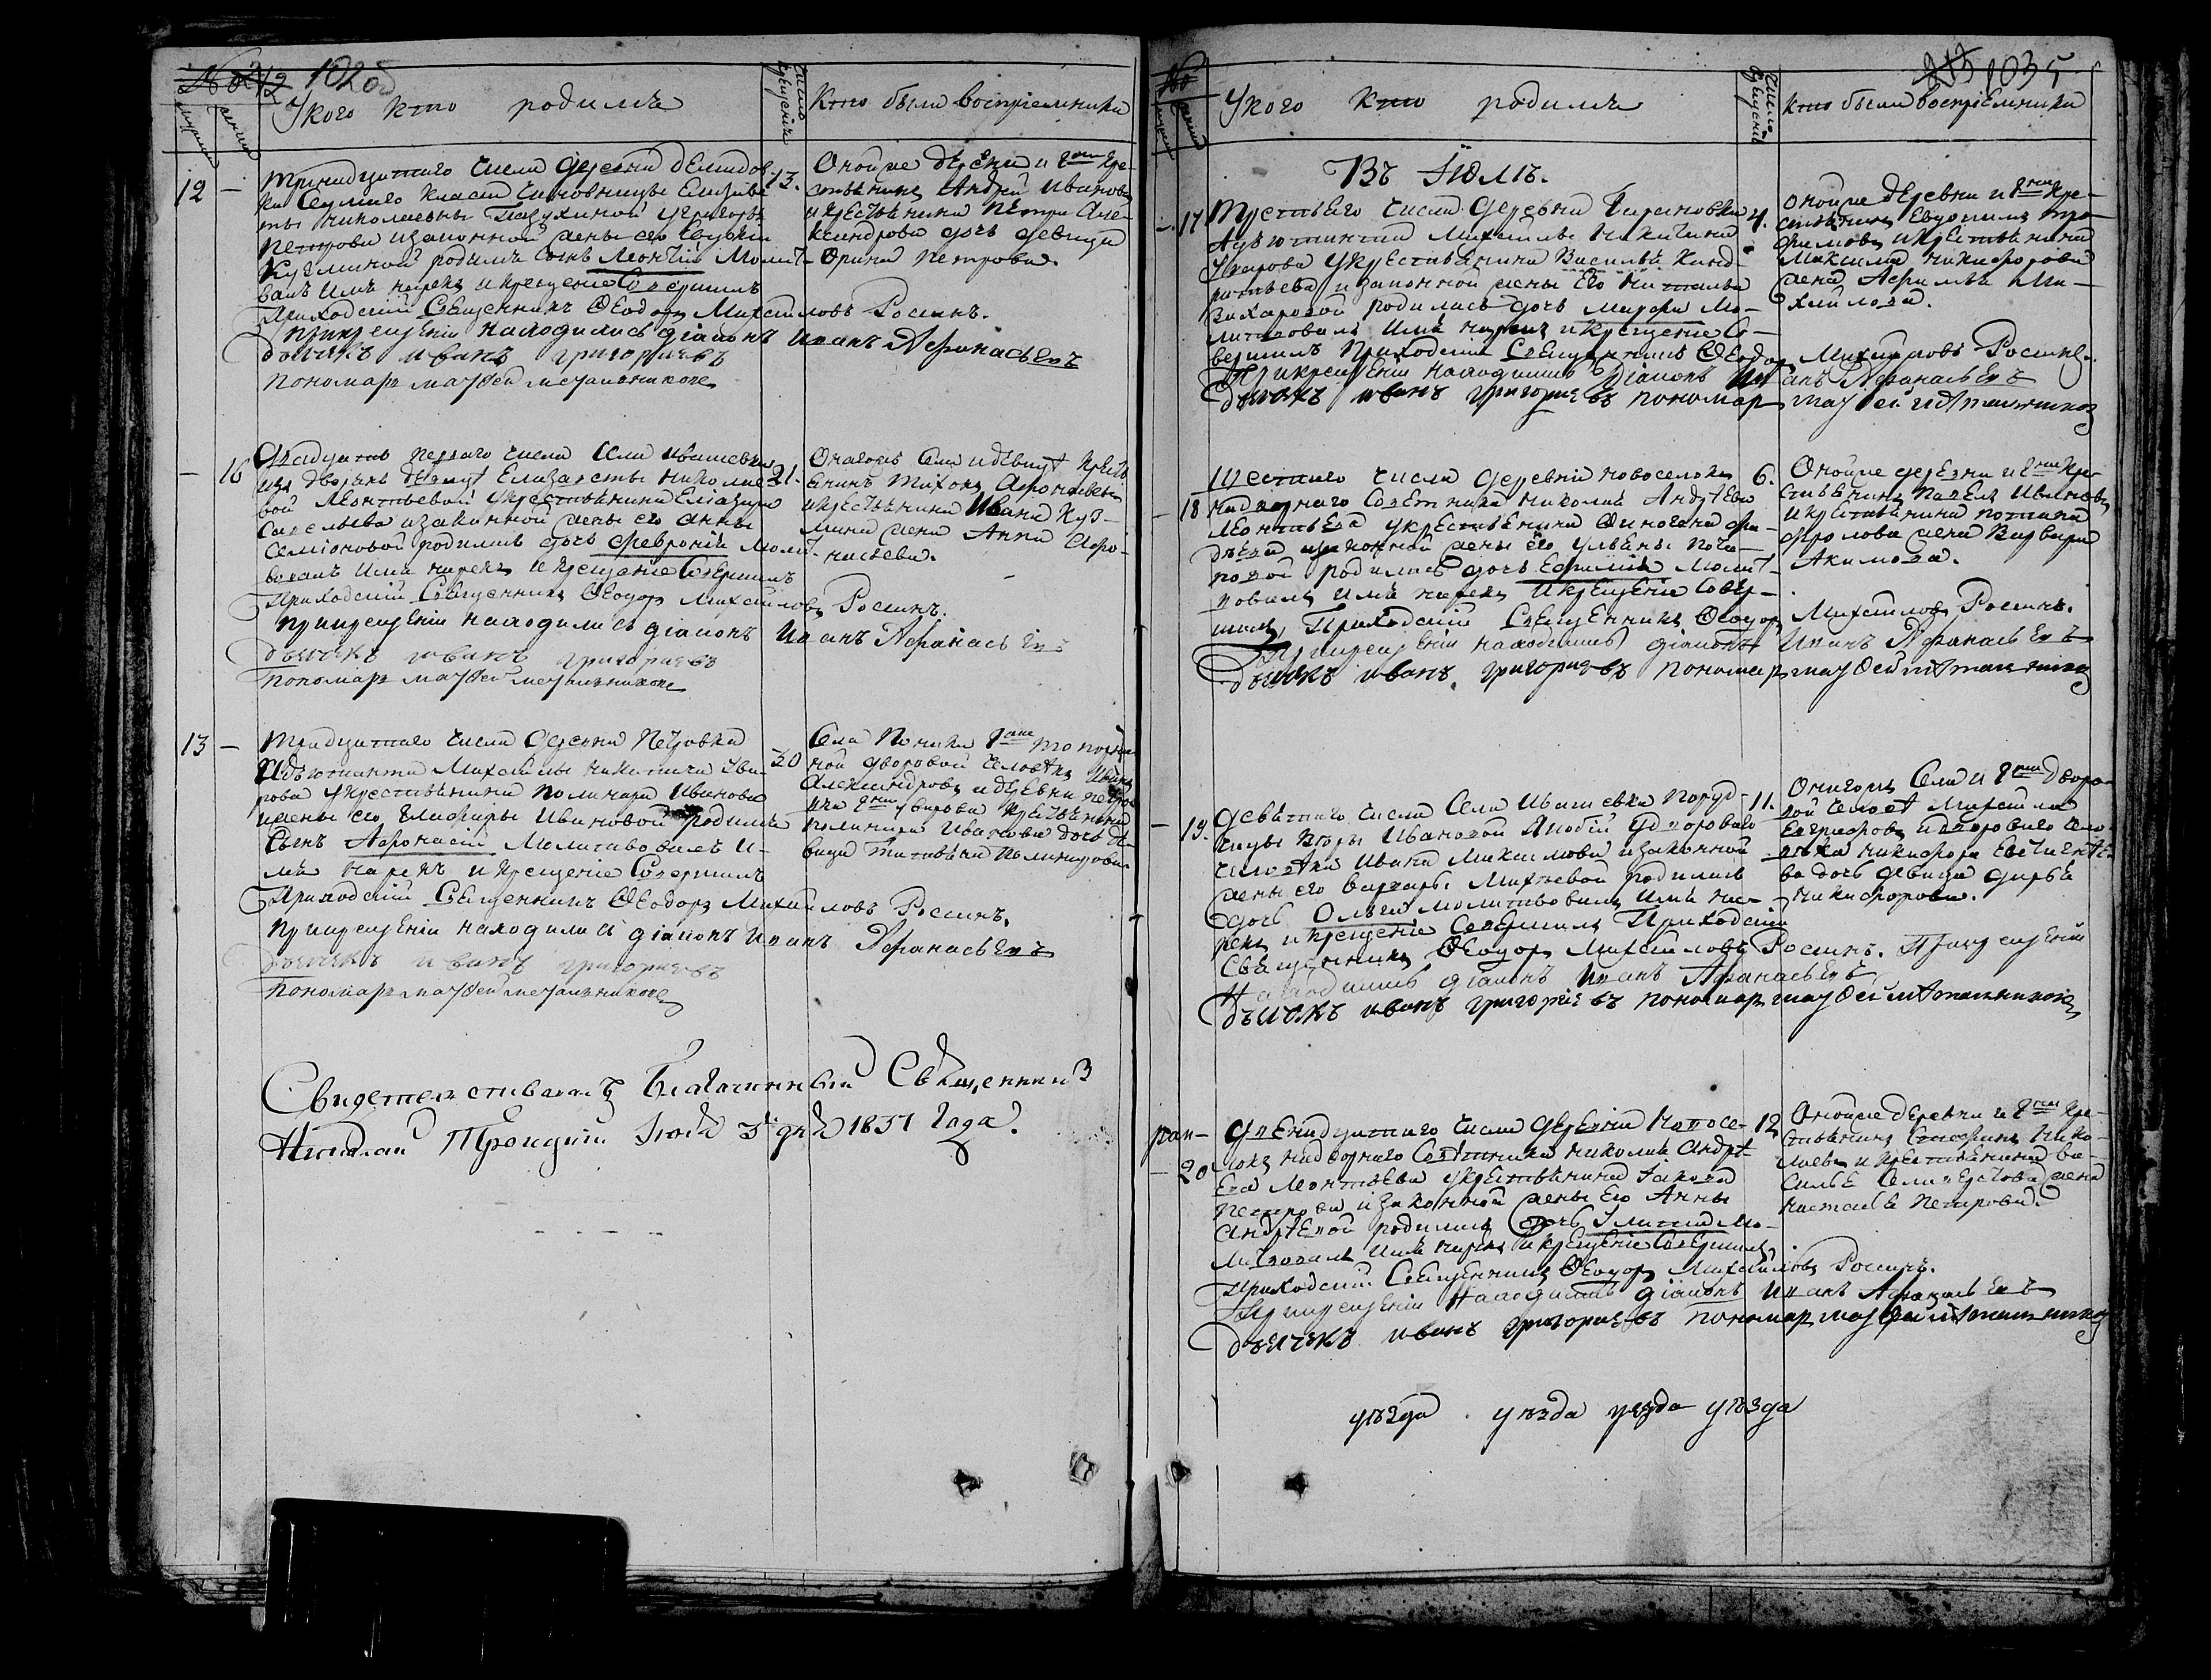 No 212 1020
У кого кто родилъ
число крещенія
Кто были воспріемники
12 — Тринадцатаго числа деревни Демидов-
ки Седмаго класса Чиновницы Елизаве-
ты Николаевны у Григорья
Петрова и законной жены его Евдокіи
Кузминой родился сынъ Леонтій Молит-
валъ имя нарекъ и крещеніе Совершилъ
Приходскій Священникъ Ѳеодоръ Михайловъ Росинъ.
При крещеніи находились діаконъ Иванъ Афанасьевъ
дьячекъ иванъ григорьевъ
пономарь матфей метальниковъ
13.
Оной же деревни и Гжи кре-
стьянинъ Андрей Ивановъ
и крестьянина Петра Але-
ксандрова дочь девица
Ирина Петрова.
— 16 Двадцать перваго числа Села Ивашевки
изъ дворянъ девицы Елизаветы Николае-
вой Леонтьевой у крестьянина Елиазара
Савельева и законной жены его Анны
Семіоновой родилась дочь Февронія Моли-
вовалъ имя нарекъ и крещеніе Совершилъ
Приходскій Священникъ Ѳеодоръ Михайловъ Росинъ.
При крещеніи находились діаконъ Иванъ Афанасьевъ
дьячекъ иванъ григорьевъ
пономарь матфей метальниковъ
21.
Онагожъ Села и девицы кресть-
янинъ Тихонъ Афонасьевъ
и крестьянина Ивана Куз-
мина жена Анна Афо-
насьева.
13 — Тридцатаго числа деревни Петровки
Адъютанта Михайлы Никитича Ува-
рова у крестьянина Полинара Иванова
и жены его Глафиры Ивановой родился
Сынъ Афонасій Молитвовалъ и-
мя нарекъ и крещеніе Совершилъ
Приходскій Священникъ Ѳеодоръ Михайловъ Росинъ.
При крещеніи находились діаконъ Иванъ Афанасьевъ
дьячекъ иванъ григорьевъ
пономарь матфей метальниковъ
30
Села Гжи
ной дворовой человекъ Иванъ
Александровъ и деревни Петров-
ки Гна Уварова крестьянина
Полинара Иванова дочь де-
вица Татьяна Полинарова
Свидетельствовалъ Благочинный Священникъ
Николай Троицкій Іюля 3 дня 1831 Года
No
213 1035
У кого кто родилъ
Число крещенія
Кто были воспріемники
Въ Іюлѣ.
— 17 Третьяго числа деревни
Адъютанта Михайлы Никитича
Уварова у крестьянина Василья Конд-
ратьева и законной жены его Натальи
Захаровой родилась дочь Марфа Мо-
литвовалъ имя нарекъ и крещеніе Со-
вершилъ Приходскій Священникъ Ѳеодоръ Михайловъ Росинъ.
При крещеніи находились Діаконъ Иванъ Афанасьевъ
дьячекъ иванъ григорьевъ пономарь матфей метальниковъ
4.
Оной же деревни и Гна кре-
стьянинъ Евдокимъ Тро-
фимовъ и крестьянина
Максима Никифорова
жена Афимья Ми-
хайлова.
— 18 Шестаго числа деревни Новоселокъ
Надворнаго Советника Николая Андреева
Леонтьева у крестьянина
законной жены его Ульяны
родилась дочь Ефимія Молит-
вовалъ имя нарекъ и крещеніе Совер-
шилъ Приходскій Священникъ Ѳеодоръ Михайловъ Росинъ.
При крещеніи находились діаконъ Иванъ Афанасьевъ
дьячекъ иванъ григорьевъ пономарь матфей метальниковъ
6.
Оной же деревни и Гна кре-
стьянинъ Павелъ Ивановъ
и крестьянина Потапа
Фролова жена Варвара
Акимова.
— 19. Девятаго числа Села Ивашевки Поруд-
чицы Веры Ивановой у двороваго
человека Ивана Михайлова и законной
жены его Варвары Михеевой родилась
дочь Ольга молитвовалъ имя на-
рекъ и крещеніе Совершилъ Приходскій
Священникъ Ѳеодоръ Михайловъ Росинъ. При крещеніи
Находились діаконъ Иванъ Афанасьевъ
дьячекъ иванъ григорьевъ пономарь матфей метальниковъ
11.
Онагожъ Села и Гжи дворо-
вой человекъ Михайла
Евграфовъ и двороваго чело-
века Никифора
ва дочь девица Дарья
Никифорова.
— 20 Двенадцатаго числа деревни Новосе-
локъ надворнаго Советника Николая Андре-
ева Леонтьева у крестьянина Іакова
Петрова и законной жены его Анны
Андреевой родилась дочь Улитта Мо-
литвовалъ имя нарекъ и крещеніе Совершилъ
Приходскій Священникъ Ѳеодоръ Михайловъ Росинъ.
При крещеніи Находились діаконъ Иванъ Афанасьевъ
дьячекъ иванъ григорьевъ пономарь матфей метальниковъ
12
Оной же деревни и Гна кре-
стьянинъ Стафей Нико-
лаевъ и крестьянина Ва-
силья Селиверстова жена
Настасья Петрова.
уѣзда уѣзда уѣзда уѣзда